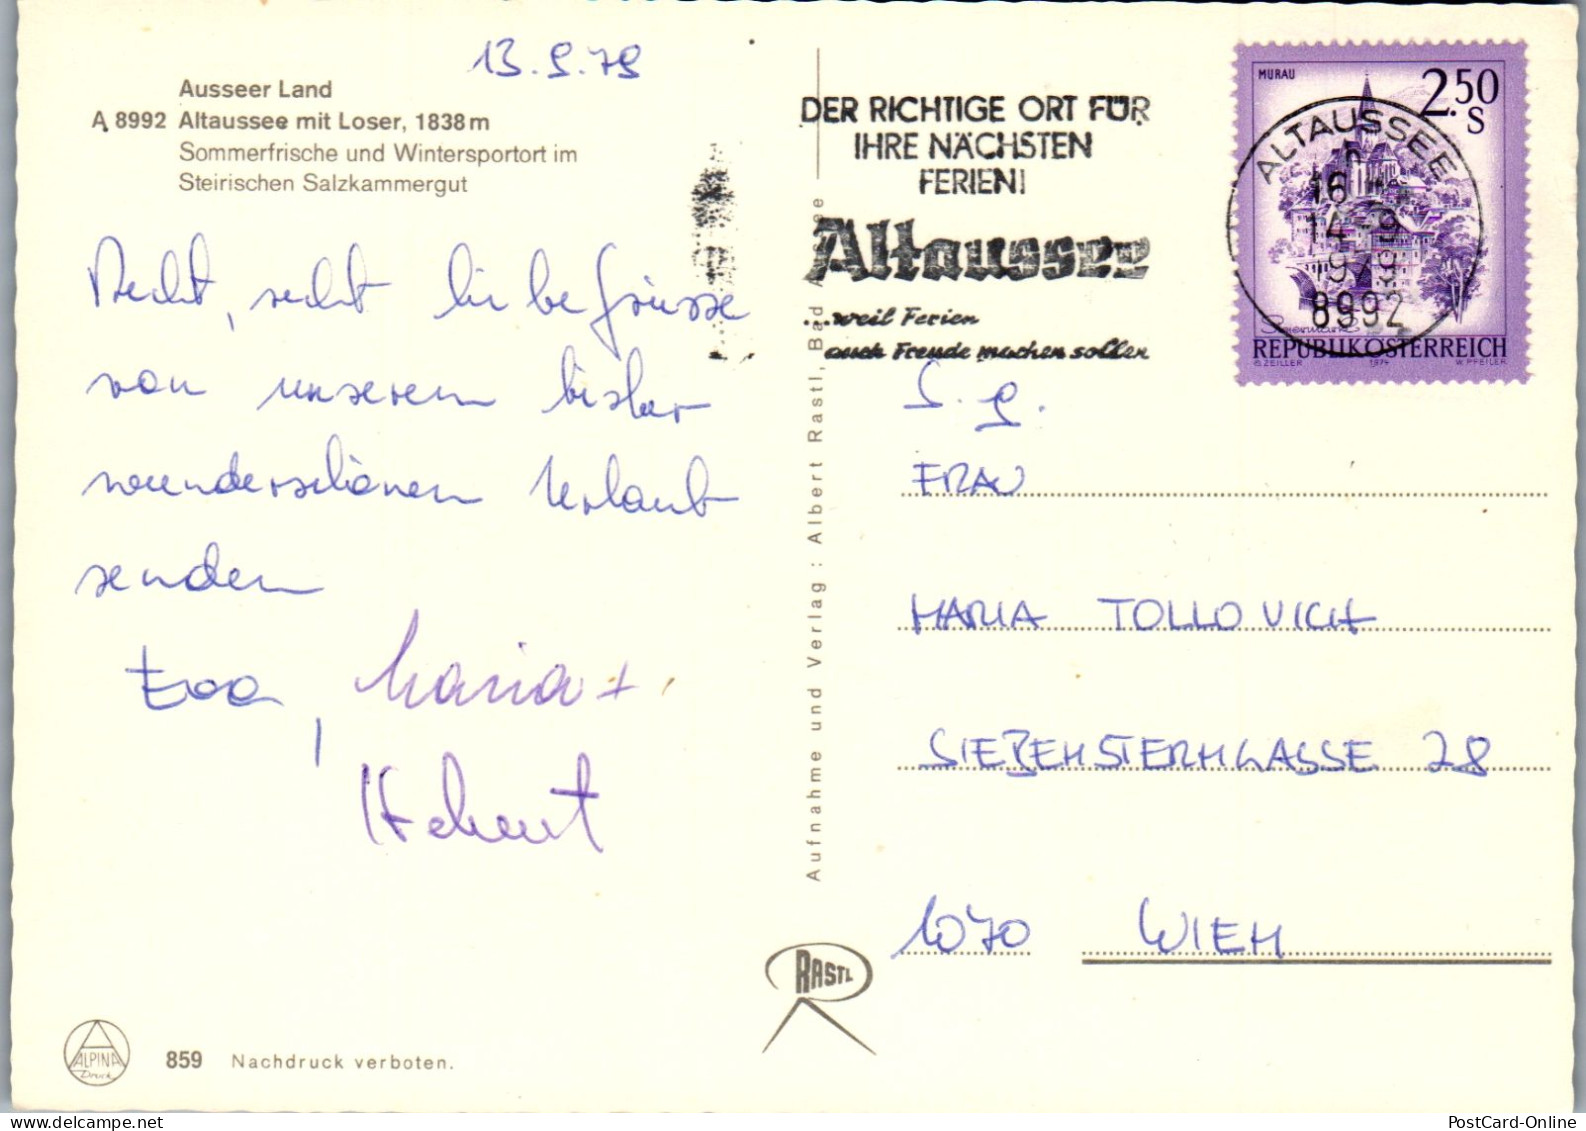 13.9.79
Ausseer Land
A 8992 Altaussee mit Loser, 1838 m
Sommerfrische und Wintersportort im
Steirischen Salzkammergut
Recht, recht liebe Grüsse
von unserem bisher
wunderschönen Urlaub
senden
Eva, Maria +
Helmut
859 Nachdruck verboten.
ALPINA
Druck
Aufnahme und Verlag: Albert Rastl, Bad Aussee
RASTL
DER RICHTIGE ORT FÜR
IHRE NÄCHSTEN
FERIEN!
Altaussee
...weil Ferien
auch Freude machen sollen
MURAU
2.50
S
ALTAUSSEE
16
14.-9.
8992
Steiermark
REPUBLIK ÖSTERREICH
O. ZEILLER 1974 W. PFEILER
S. g.
FRAU
MARIA TOLLOVICH
SIEBENSTERNGASSE 28
1070 WIEN
PostCard-Online